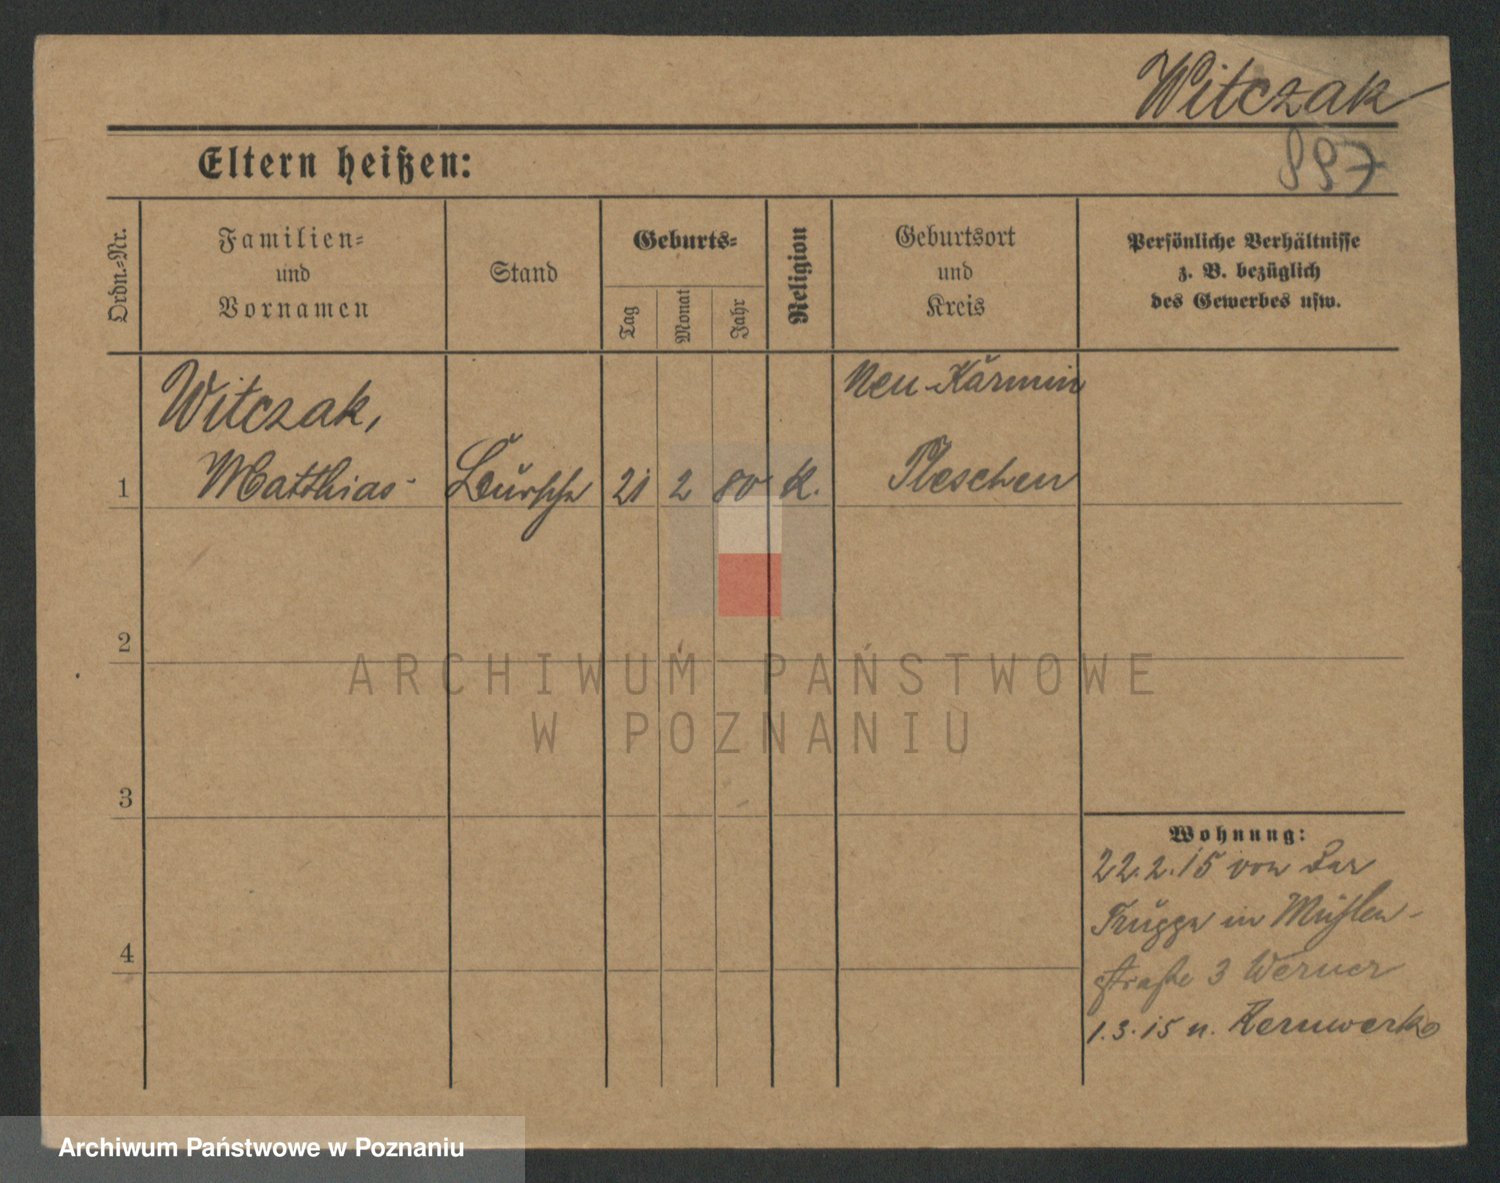 Witczak
997
Eltern heißen:
Ordn.-Nr.
Familien-
und
Vornamen
Stand
Geburts-
Tag
Monat
Jahr
Religion
Geburtsort
und
Kreis
Persönliche Verhältnisse
z. B. bezüglich
des Gewerbes usw.
1
Witczak,
Matthias
Bursche
21
2
80
k.
Neu-Karmin
Pleschen
2
3
4
ARCHIWUM PAŃSTWOWE
W POZNANIU
Wohnung:
22.2.15 von der
Truppe in Mühlen-
straße 3 Werner
1.3.15 n. Kernwerk
Archiwum Państwowe w Poznaniu